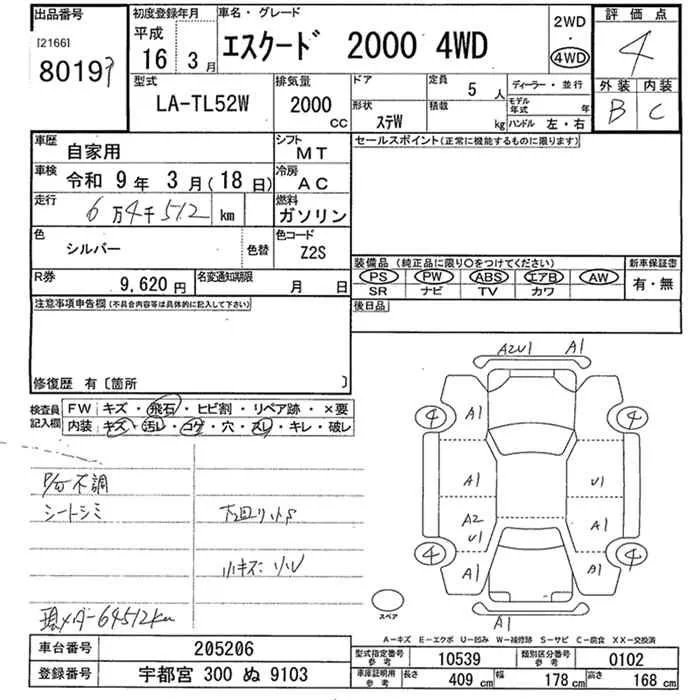 出品番号
[2166]
初度登録年月
平成
16 年 3 月
車名・グレード
エスクード 2000 4WD
2WD
・
4WD
評価点
4
外装 内装
B C
型式
LA-TL52W
排気量
2000
CC
ドア
定員
5 人
形状
ステW
積載
kg
ディーラー・並行
モデル年式 年
ハンドル 左・右
車歴
自家用
シフト
MT
車検
令和 9 年 3 月(18 日)
冷房
AC
走行
6万4千512 km
燃料
ガソリン
色
シルバー
色替
色コード
Z2S
R券
9,620 円
名変通知期限
月 日
セールスポイント(正常に機能するものに限ります)
装備品(純正品に限り○をつけてください)
PS PW ABS エアB AW
SR ナビ TV カワ
新車保証書
有・無
後日品
注意事項申告欄(不具合内容等は具体的に記入して下さい)
修復歴 有[箇所 ]
検査員
記入欄
FW キズ・飛石・ヒビ割・リペア跡・×要
内装 キズ・汚レ・コゲ・穴・スレ・キレ・破レ
不調
シートシミ
小キズ
A2U1 A1
4 A1 4
A1 U1
A2 U1 A1
4 A1 A1 4
A1
スペア
A-キズ E-エクボ U-凹み W-補修跡 S-サビ C-腐食 XX-交換済
車台番号
205206
登録番号
宇都宮 300 ぬ 9103
型式指定番号
参考
10539
類別区分番号
参考
0102
車庫証明用
参考
長さ 409 cm
幅 178 cm
高さ 168 cm